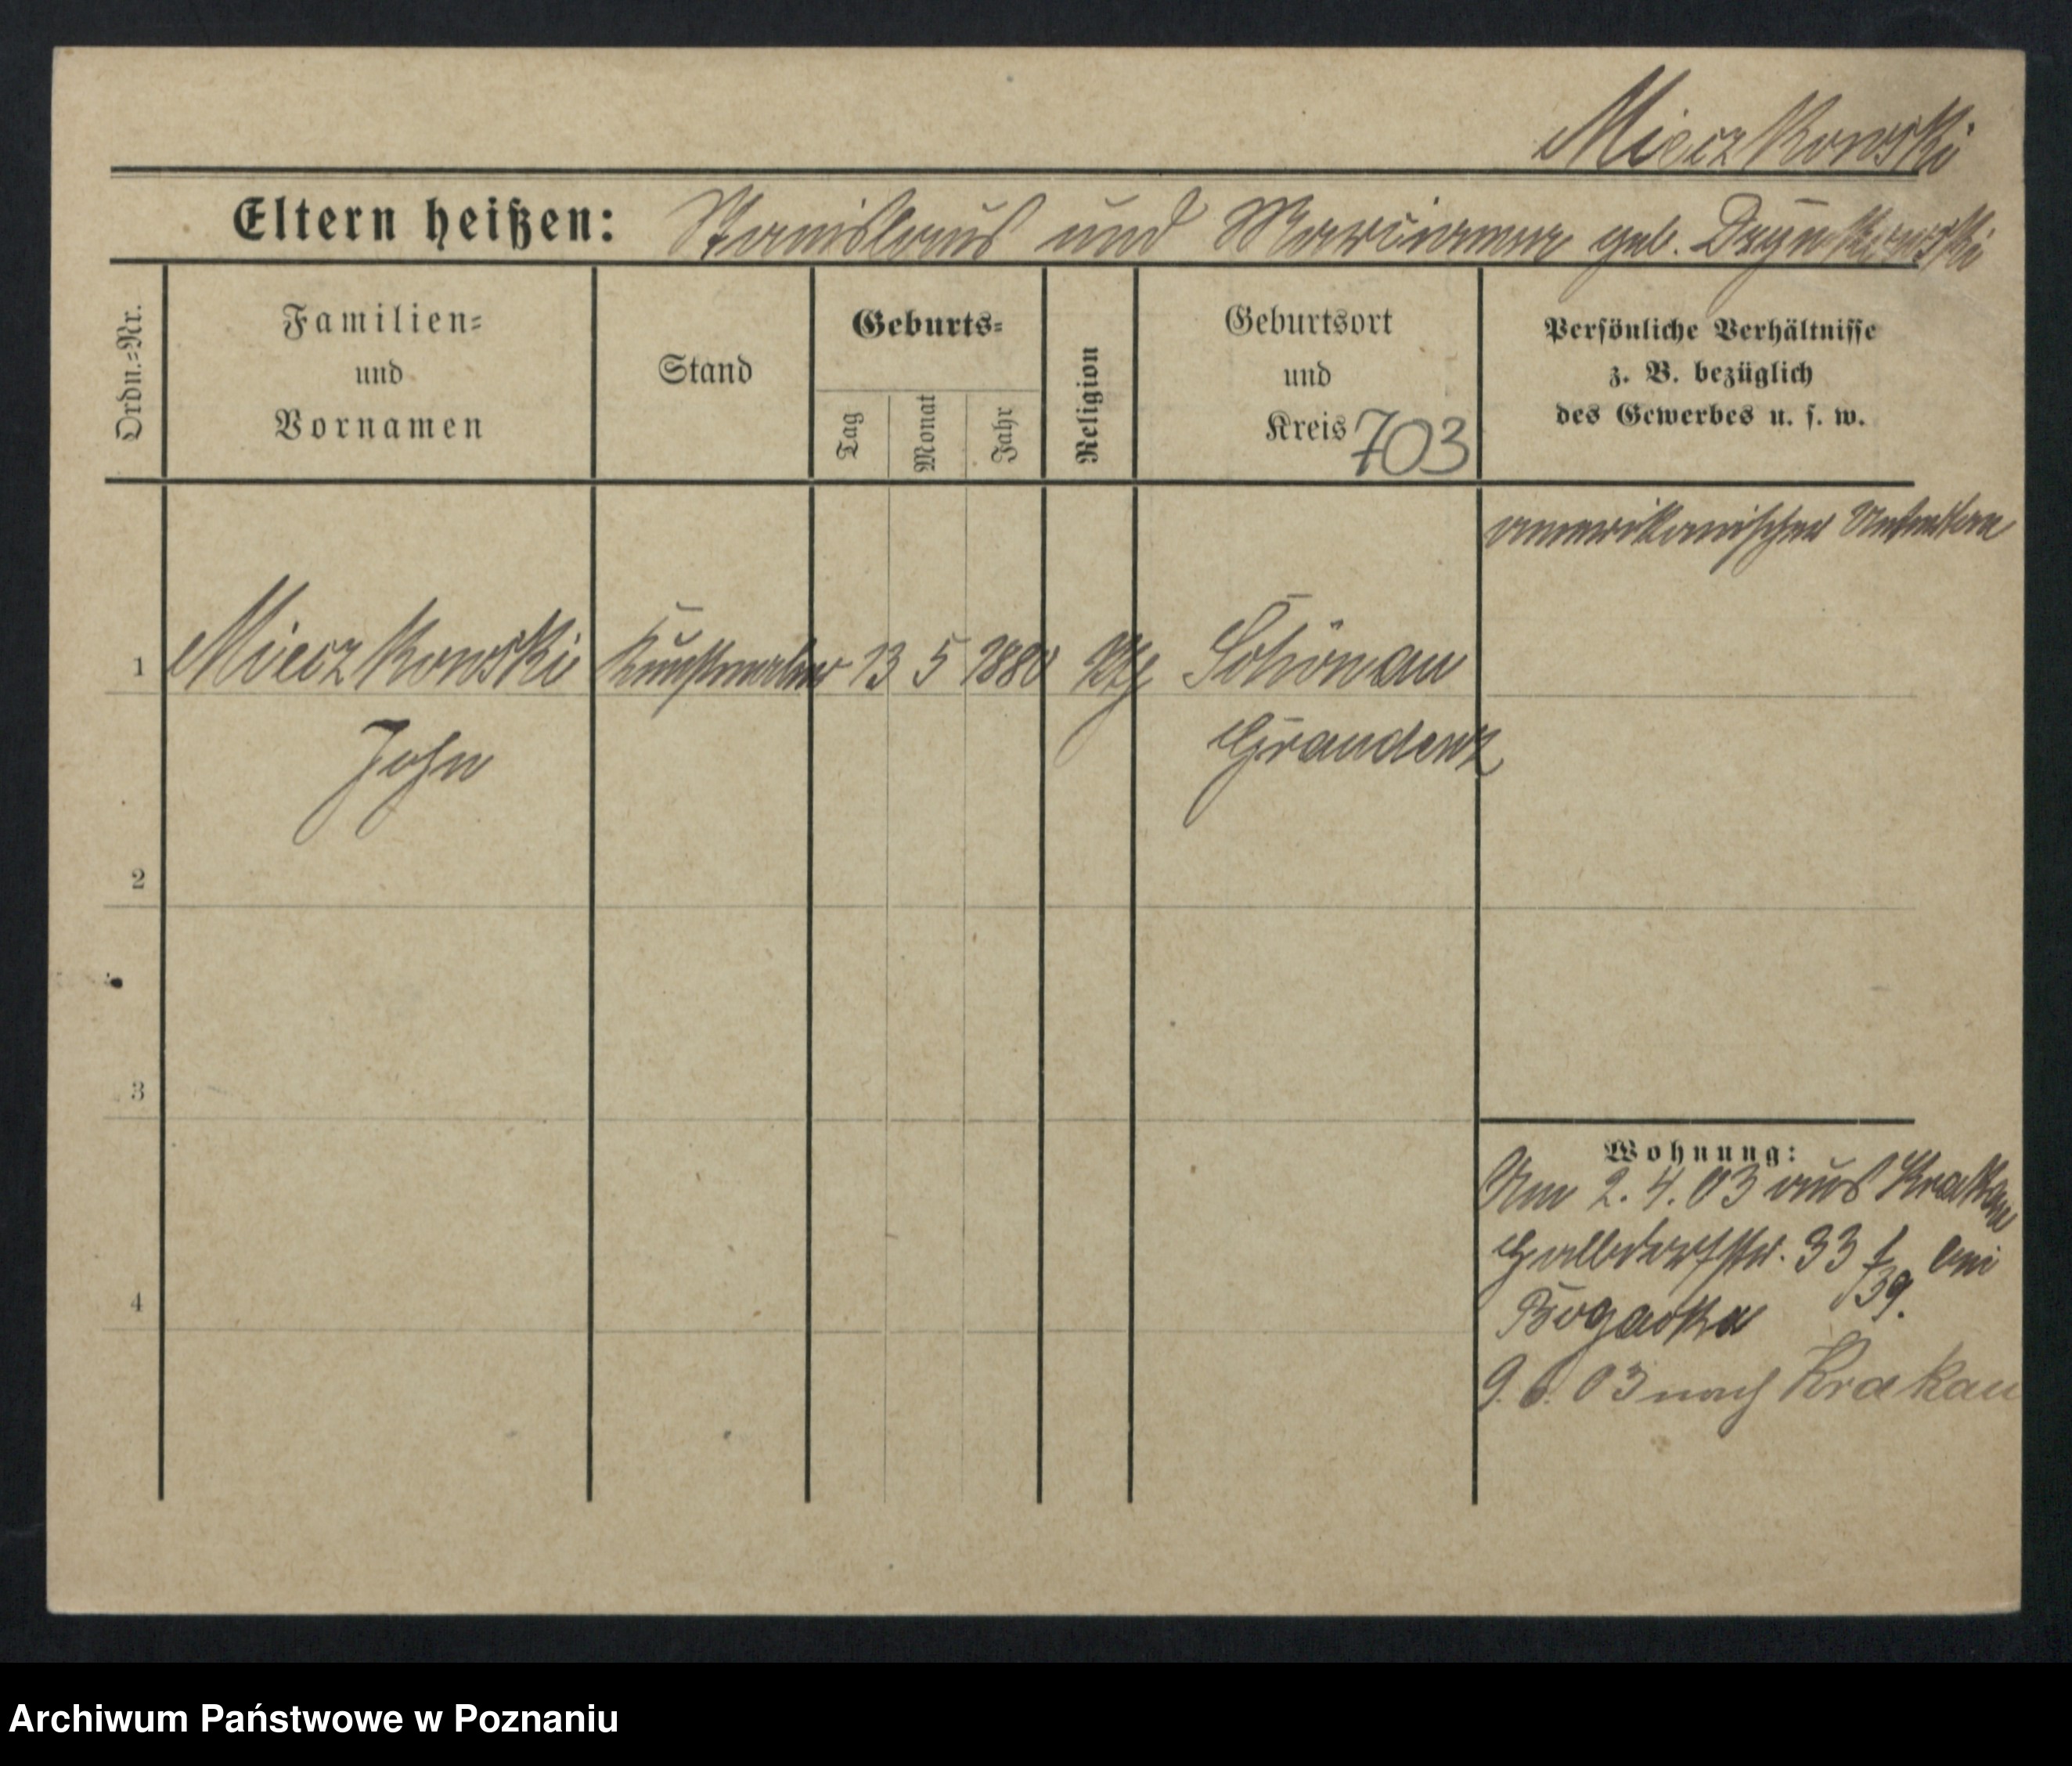 Mieczkowski
Eltern heißen: Stanislaus und Marianna geb.
Ordn.=Nr.
Familien=
und
Vornamen
Stand
Geburts=
Tag
Monat
Jahr
Religion
Geburtsort
und
Kreis 703
Persönliche Verhältnisse
z. B. bezüglich
des Gewerbes u. s. w.
amerikanischer
1 Mieczkowski Kunstmaler 13 5 1880 Schönau
John Graudenz
2
3
4
Wohnung:
2.4.03 aus Krakau
33 bei
39.
9.6.03 nach Krakau
Archiwum Państwowe w Poznaniu